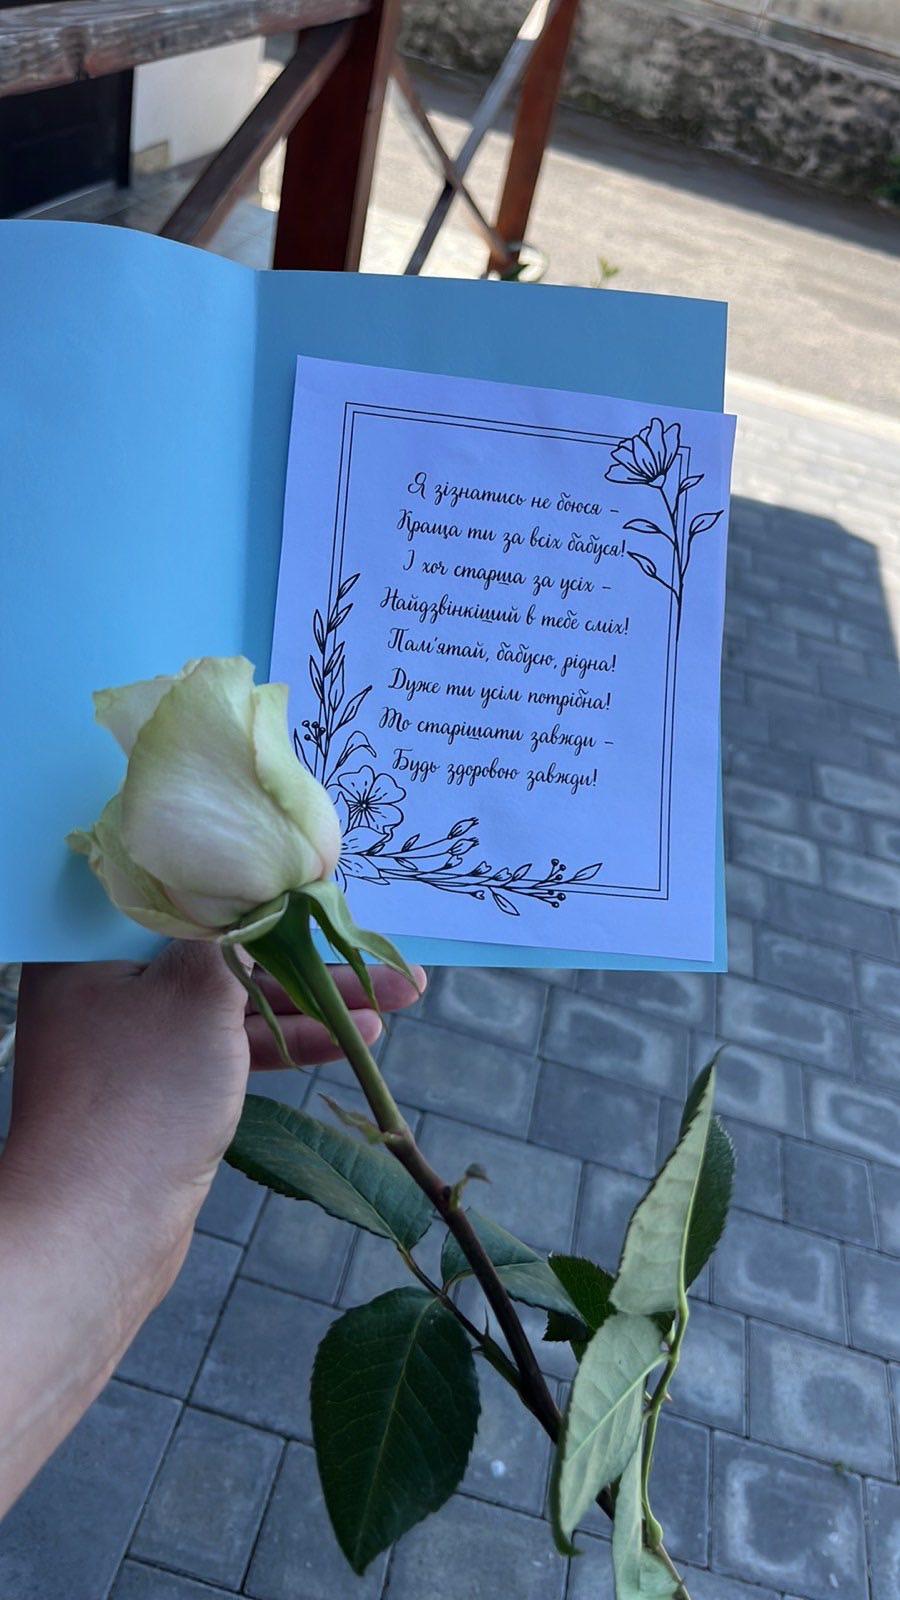 Я зізнатись не боюся –
Краща ти за всіх бабуся!
І хоч старша за усіх –
Найдзвінкіший в тебе сміх!
Пам'ятай, бабусю, рідна!
Дуже ти усім потрібна!
То старішати завжди –
Будь здоровою завжди!